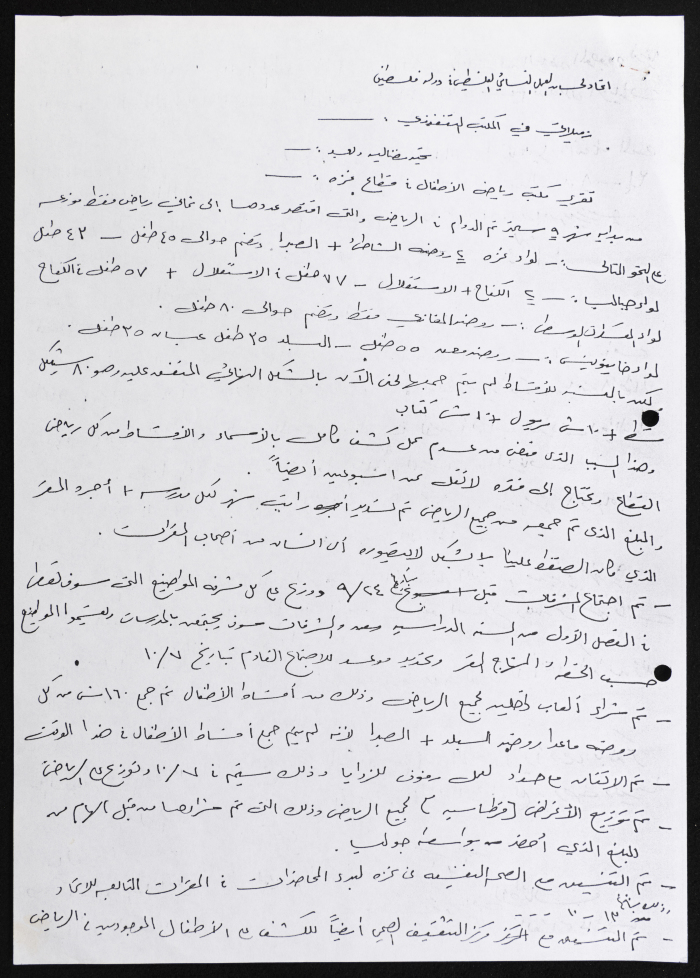 اتحاد لجان العمل النسائي الفلسطيني في دولة فلسطين
زميلاتي في المكتب التنفيذي :
تحية نضالية وبعد :ـ
تقرير مكتب رياض الأطفال في قطاع غزة :ـ
من بداية شهر ٩ سيتم تم الدوام في الرياض والتي اقتصر عددها إلى ثماني رياض فقط موزعة
على النحو التالي :ـ لواء غزة ٢ روضة الشاطئ + الصبرا وتضم حوالي ٤٥ طفل ـ ٤٢ طفل
لواء جباليا :ـ ٢ الكفاح + الاستقلال ـ ٧٧ طفل في الاستقلال + ٥٧ طفل في الكفاح
لواء المعسكرات الوسطى :ـ روضة المغازي فقط وتضم حوالي ٨٠ طفل .
لواء خانيونس :ـ روضة معن ٥٥ طفل ـ البلد ٣٥ طفل عبسان ٣٥ طفل .
لكن بالنسبة للأقساط لم يتم جمعها لحتى الآن بالشكل النهائي المتفق عليه وهو ٨٠ شيكل
قسط + ١٠ ش رسول + ١٠ ش كتاب
وهذا السبب الذي من عدم عمل كشف كامل بالأسماء والأقساط من كل رياض
القطاع ونحتاج إلى فترة لا تقل عن اسبوعين أيضاً .
والمبلغ الذي تم جمعه من جميع الرياض تم تسديد راتب شهر لكل مدرسة + أجرة المقر
الذي كان الضغط علينا بالشكل لا يتصوره أي انسان من أصحاب المقرات .
ـ تم اجتماع المشرفات قبل بتاريخ ٩/٢٤ ووزع على كل مشرفة المواضيع التي سوف تعطى
في الفصل الأول من السنة الدراسية والمشرفات سوف يجتمعن بالمدرسات ويقسموا المواضيع
حسب الخطة والمنهاج المقر وتحديد موعد للاجتماع القادم بتاريخ ١٠/٧
ـ تم شراء ألعاب داخلية لجميع الرياض وذلك من أقساط الأطفال تم جمع ١٦٠ ش من كل
روضة ماعدا روضة البلد + الصبرا لأنه لم يتم جمع أقساط الأطفال في هذا الوقت
ـ تم الاتفاق مع حداد لعمل رفوف للزوايا وذلك سيتم في ١٠/٧ وتوزع على الرياض
ـ تم توزيع الأغراض [قرطاسية] لجميع الرياض وذلك التي تم شراءها من قبل الهام من
المبلغ الذي أحضر من بواسطة جوليا .
ـ تم التنسيق مع الصحة النفسية في غزة لبدء المحاضرات في المقرات التابعة للاتحاد
ـ تم التنسيق مع المركز مركز التثقيف الصحي أيضاً للكشف على الأطفال الموجودين في الرياض